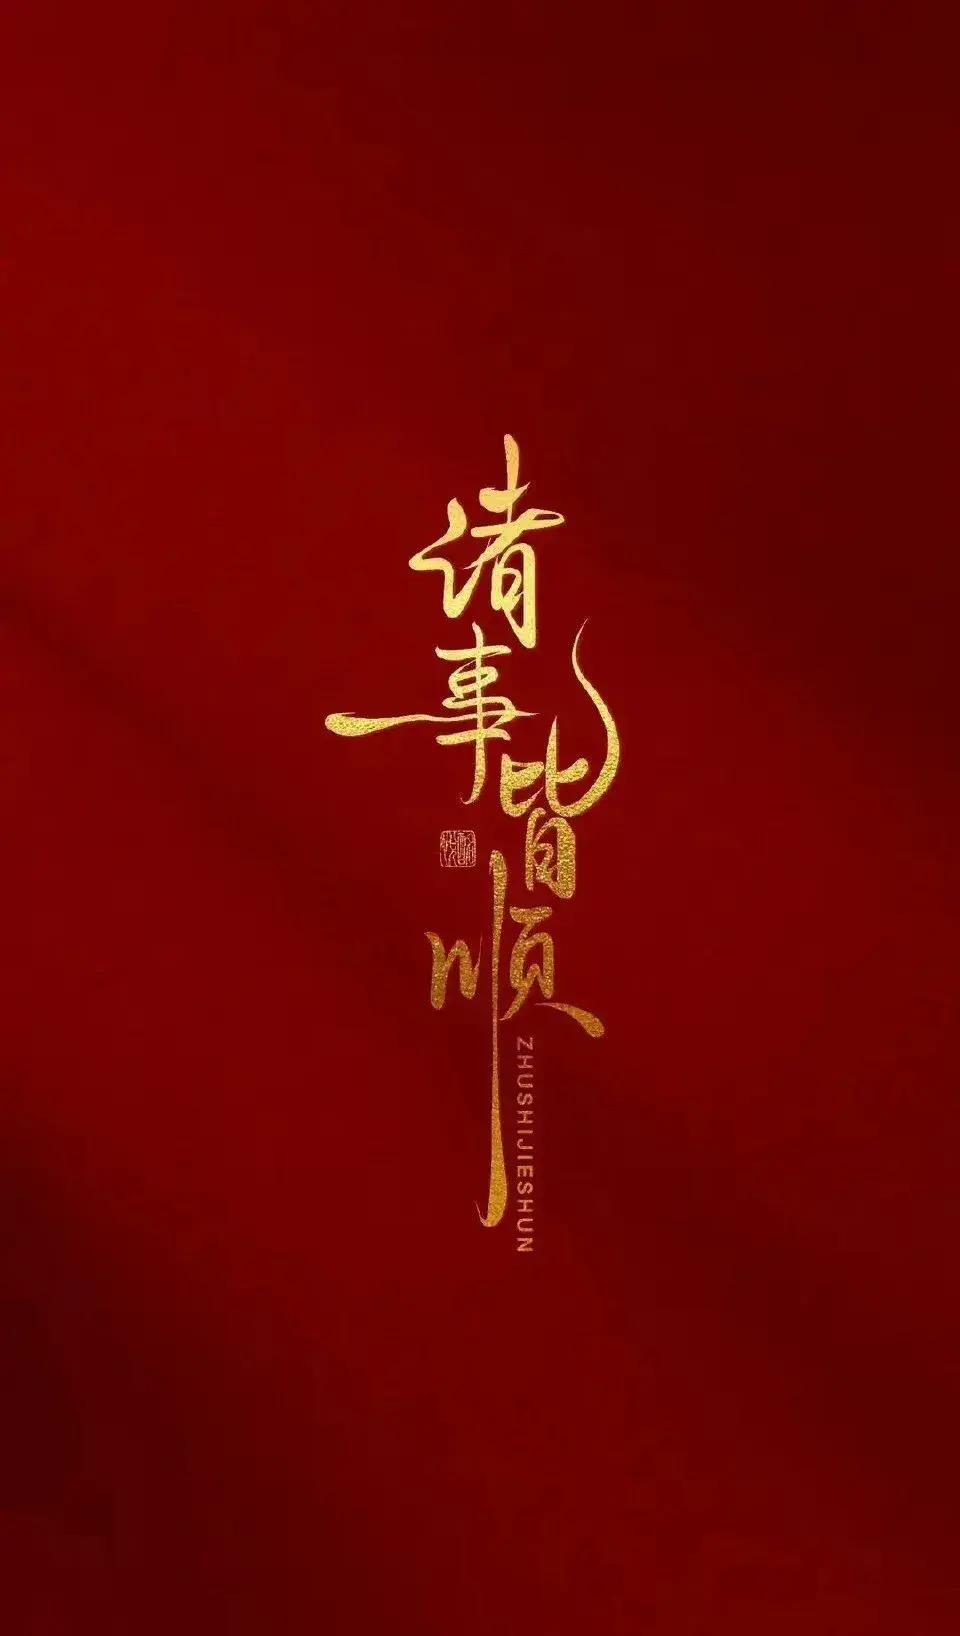 诸事皆顺
ZHUSHIJIESHUN